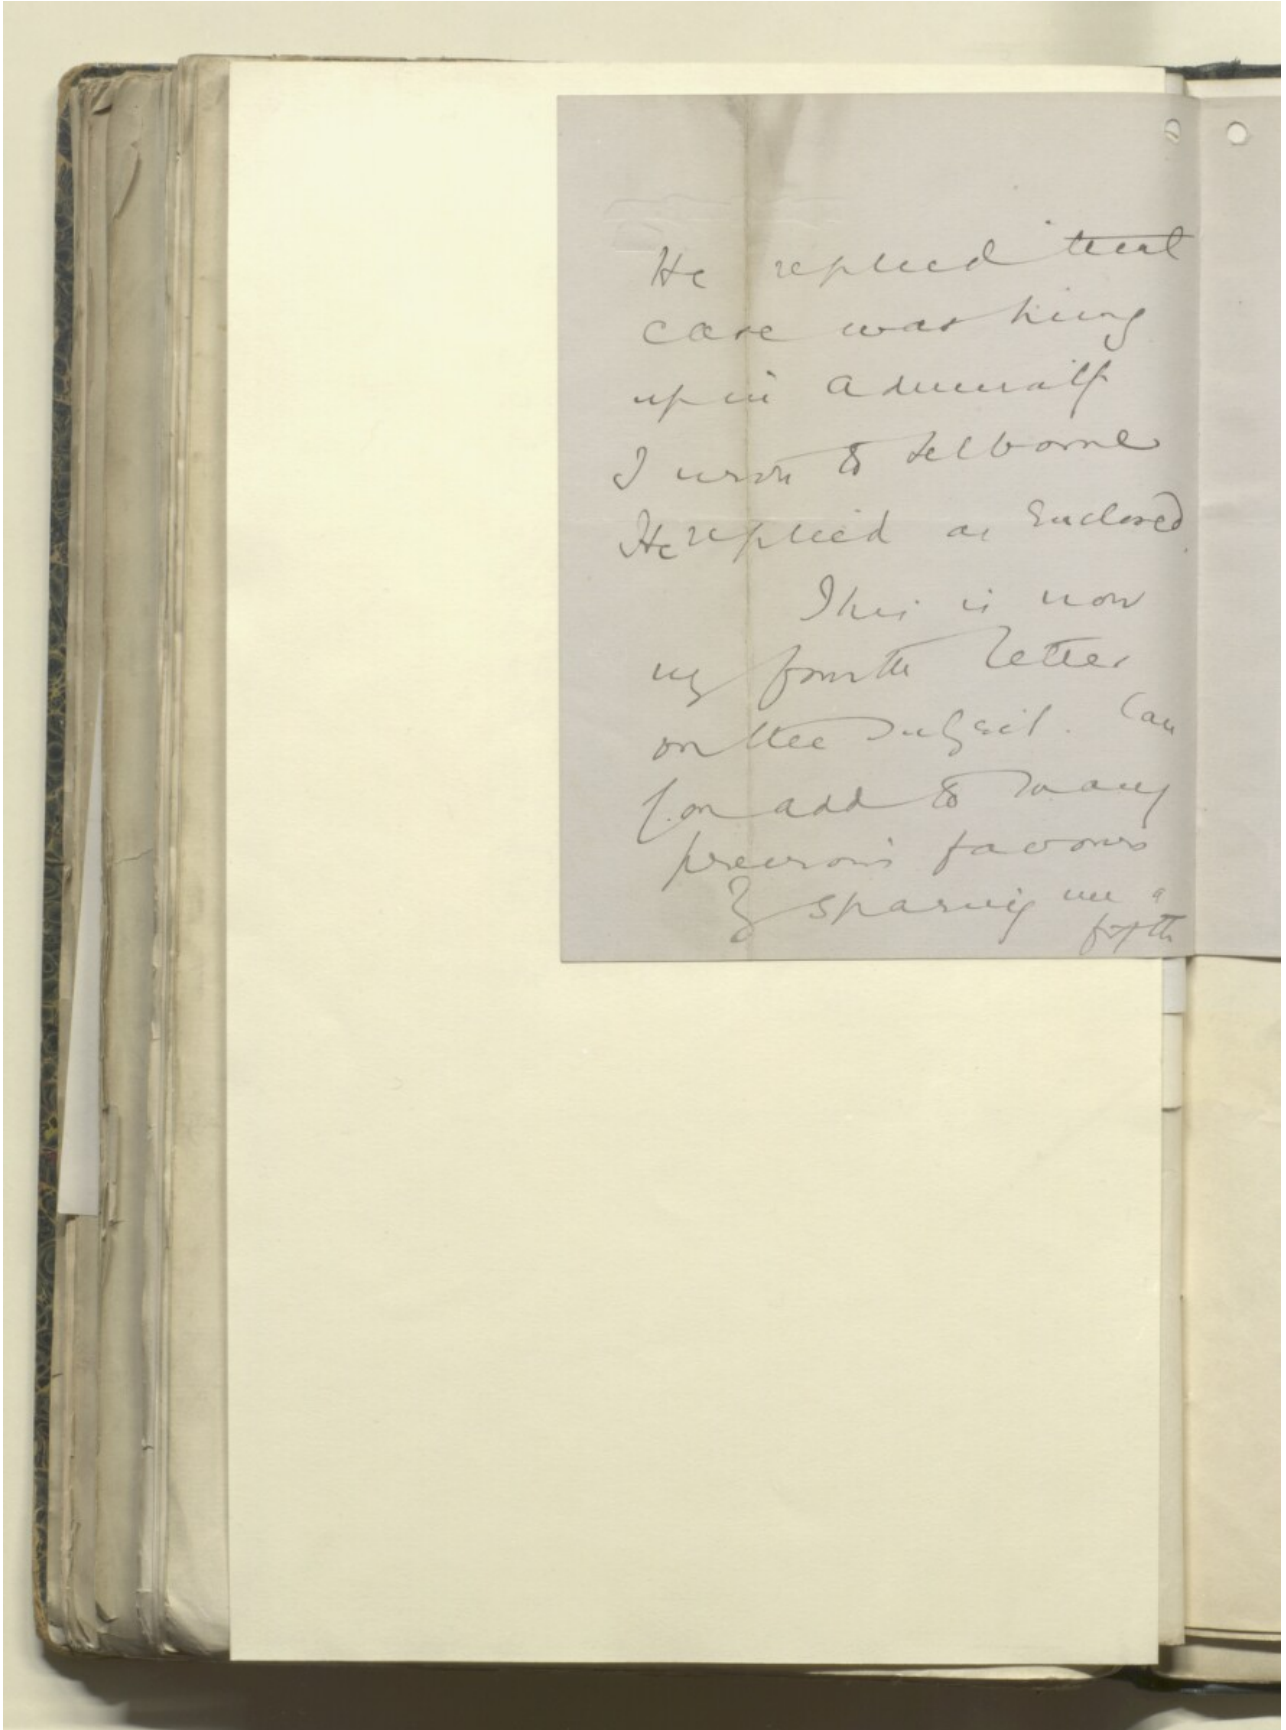 He replied that
case was hung
up in Admiralty
I wrote to Selborne
He replied as Enclosed.
This is now
my fourth letter
on the subject. Can
you add to many
previous favours
by sparing me a
fifth